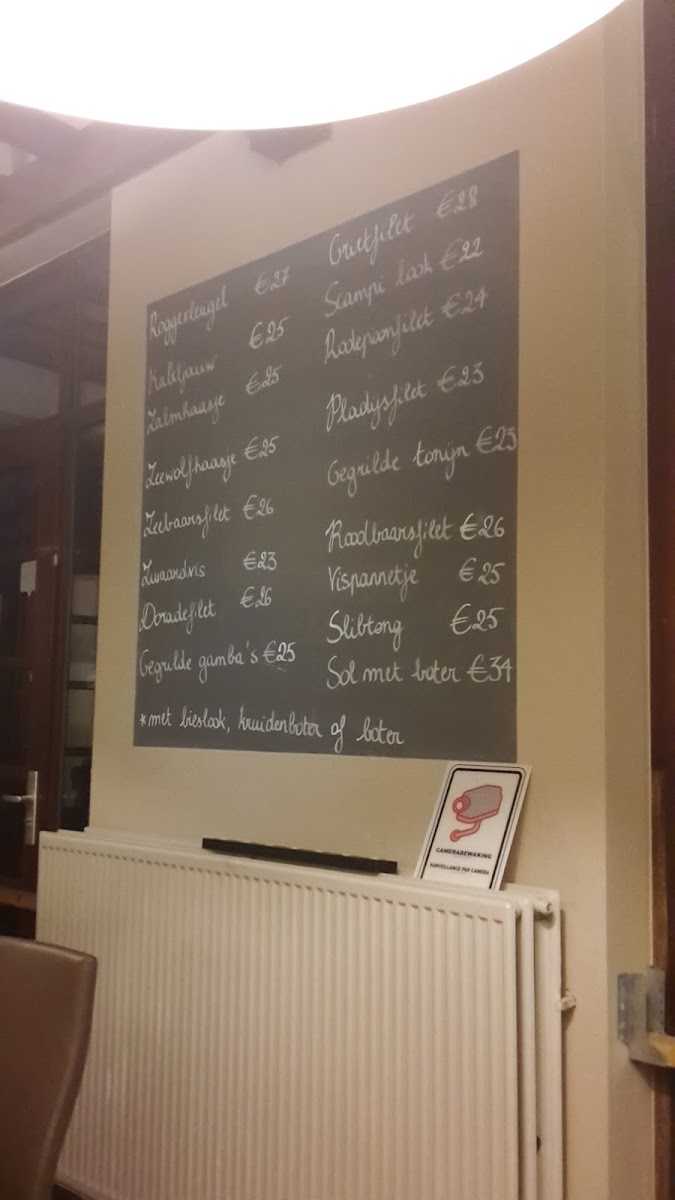 Roggevleugel €27
Kabeljauw €25
Zalmhaasje €25
Zeewolfhaasje €25
Zeebaarsfilet €26
Zwaardvis €23
Doradefilet €26
Gegrilde gamba's €25
Grietfilet €28
Scampi look €22
Rodepoonfilet €24
Pladijsfilet €23
Gegrilde tonijn €23
Roodbaarsfilet €26
Vispannetje €25
Slibtong €25
Sol met boter €34
*met bieslook, kruidenboter of boter
CAMERABEWAKING
SURVEILLANCE PAR CAMERA